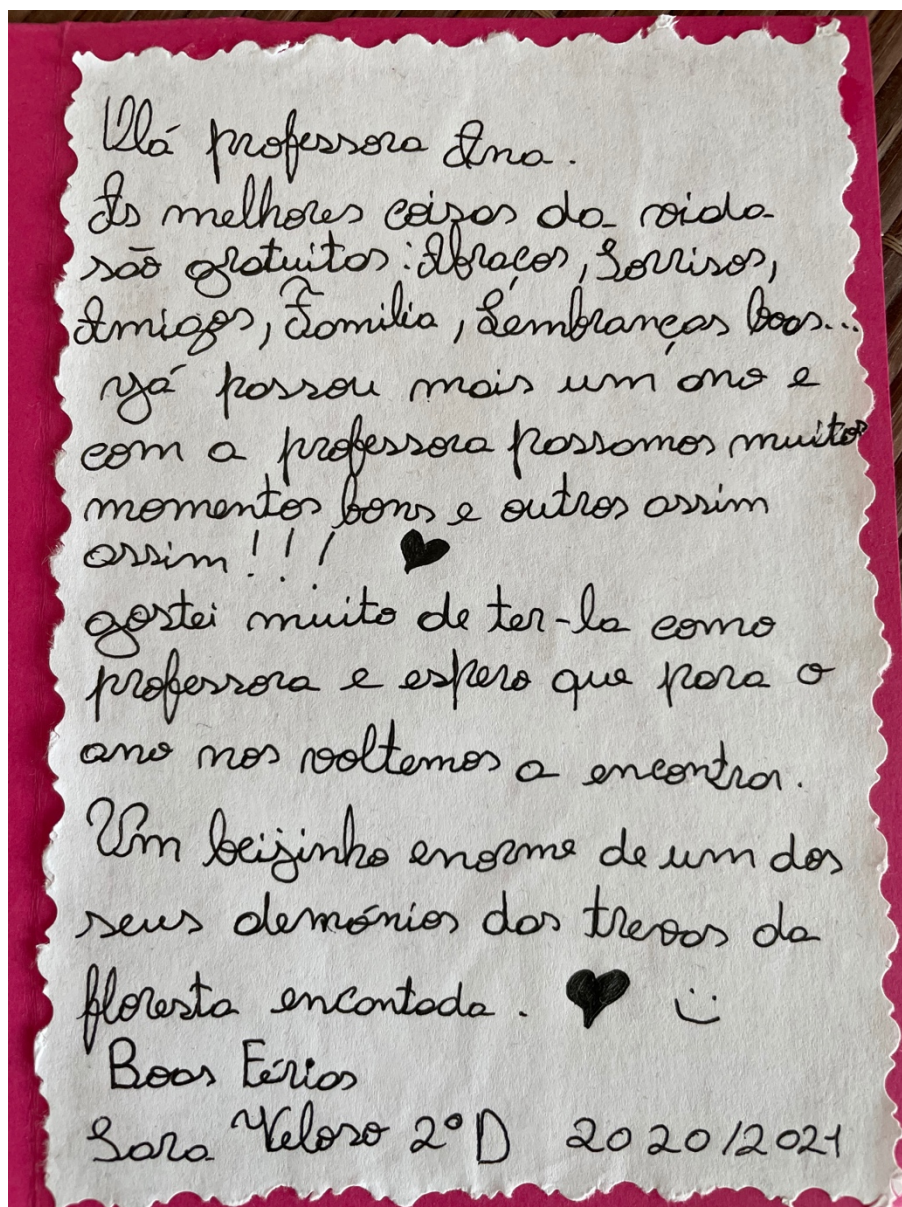 Olá professora Ana.
As melhores coisas da vida
são gratuitas: Abraços, Sorrisos,
Amigos, Família, Lembranças boas...
Já passou mais um ano e
com a professora passamos muitos
momentos bons e outros assim
assim!!! ♥
gostei muito de ter-la como
professora e espero que para o
ano nos voltemos a encontrar.
Um beijinho enorme de um dos
seus demónios das trevas da
floresta encantada. ♥ :)
Boas Férias
Sara Veloso 2ºD 2020/2021